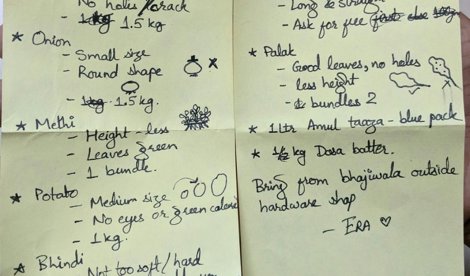 No holes/crack
1.5 kg
★ Onion
- Small size
- Round shape
- 1.5 kg.
★ Methi
- Height - less
- Leaves green
- 1 bundle.
★ Potato
- Medium size
- No eyes or green
- 1 kg.
★ Bhindi
Not too soft/hard
- Long &
- Ask for free
★ Palak
- Good leaves, no holes
- less height
- bundles 2
★ 1 ltr Amul taaza - blue pack
★ 1/2 kg Dosa batter.
Bring from bhajiwala outside
hardware shop
- ERA ♡